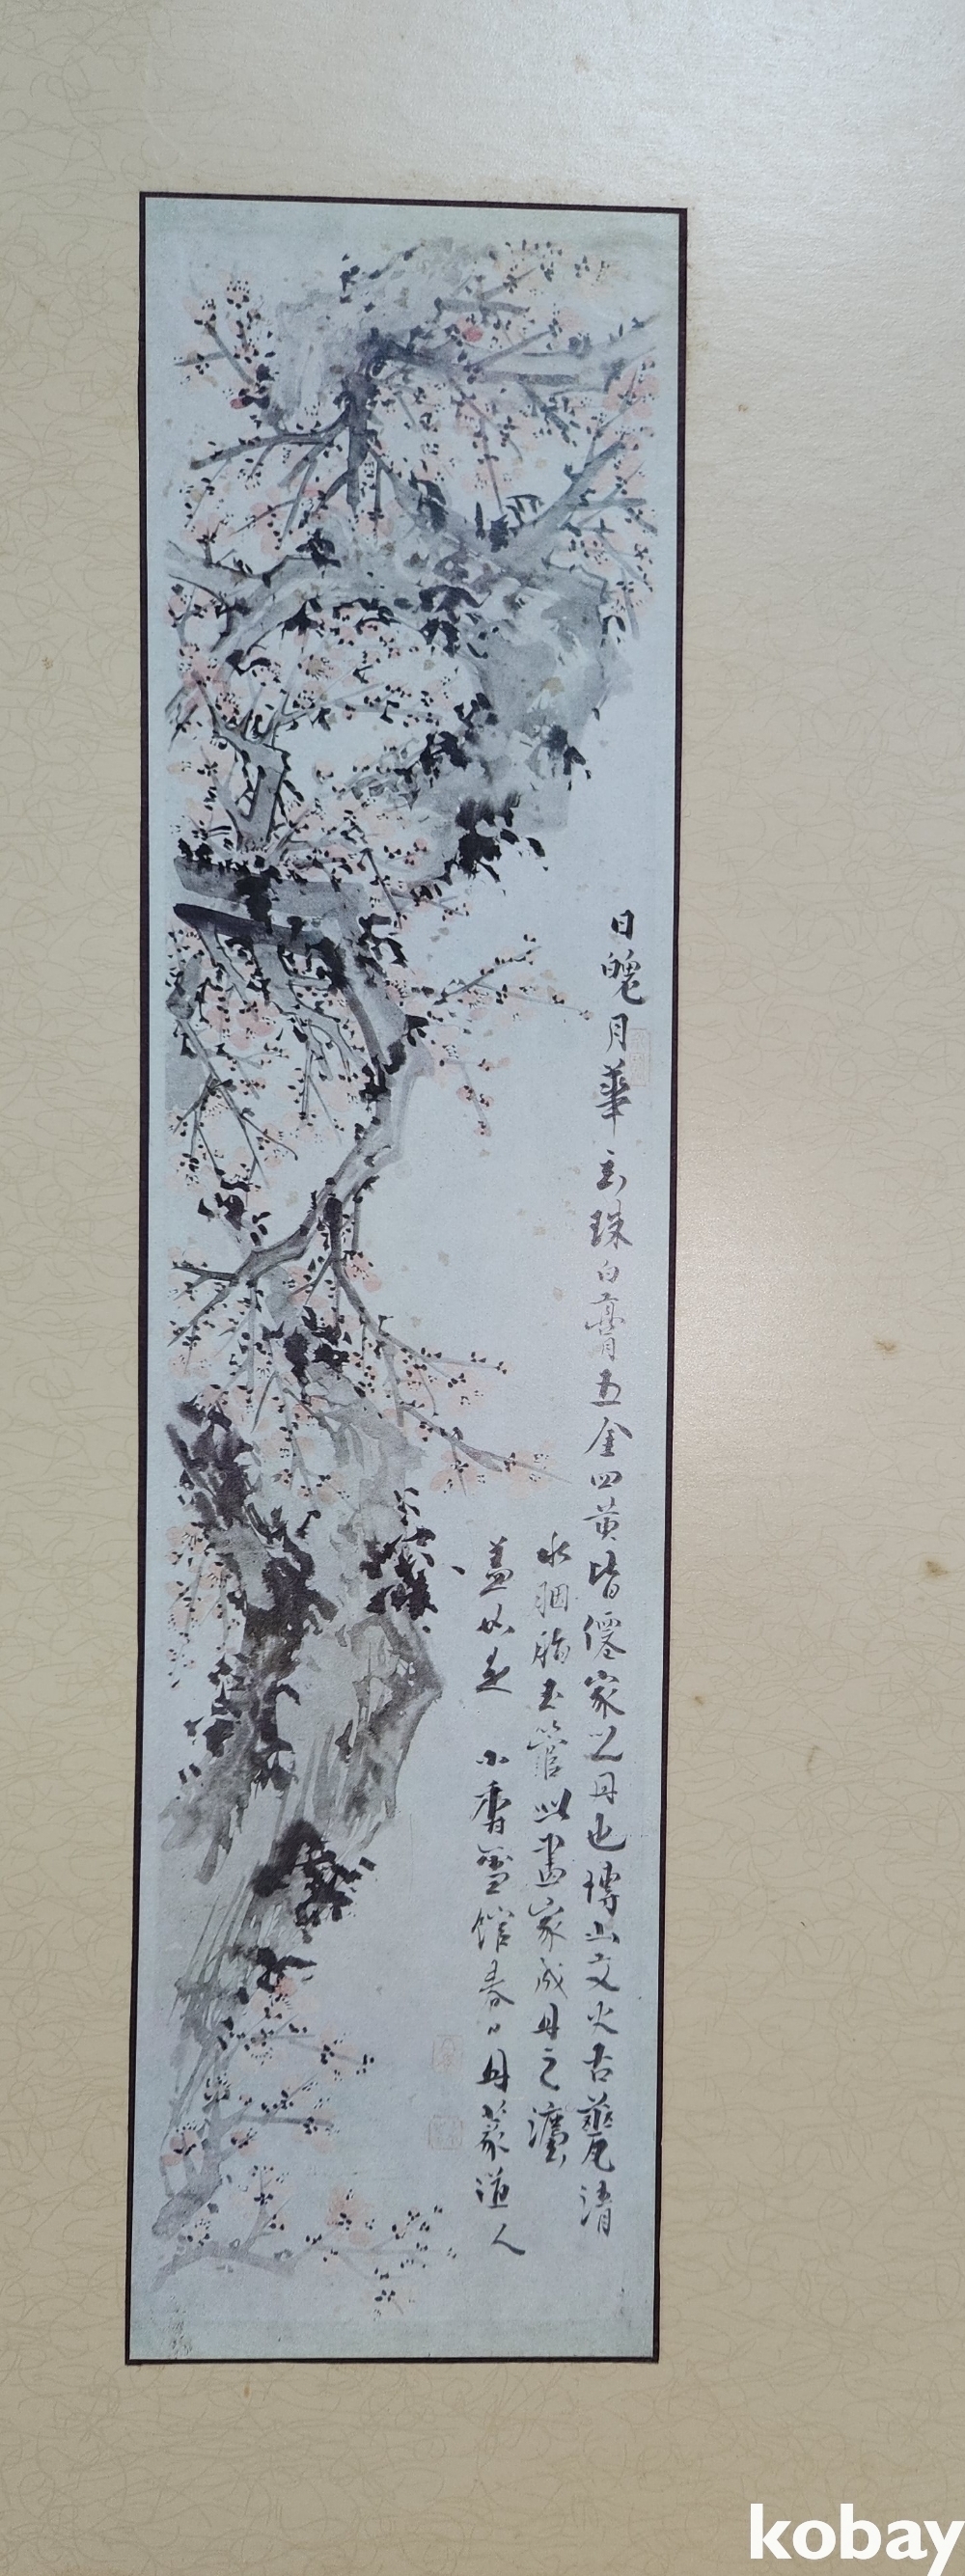 日魄月華玄珠白膏五金四黃皆僊家之丹也博山文火古甕清
水胭脂玉管此畫家成丹之灋
蓋如是 小香雪館春日丹篆道人
kobay